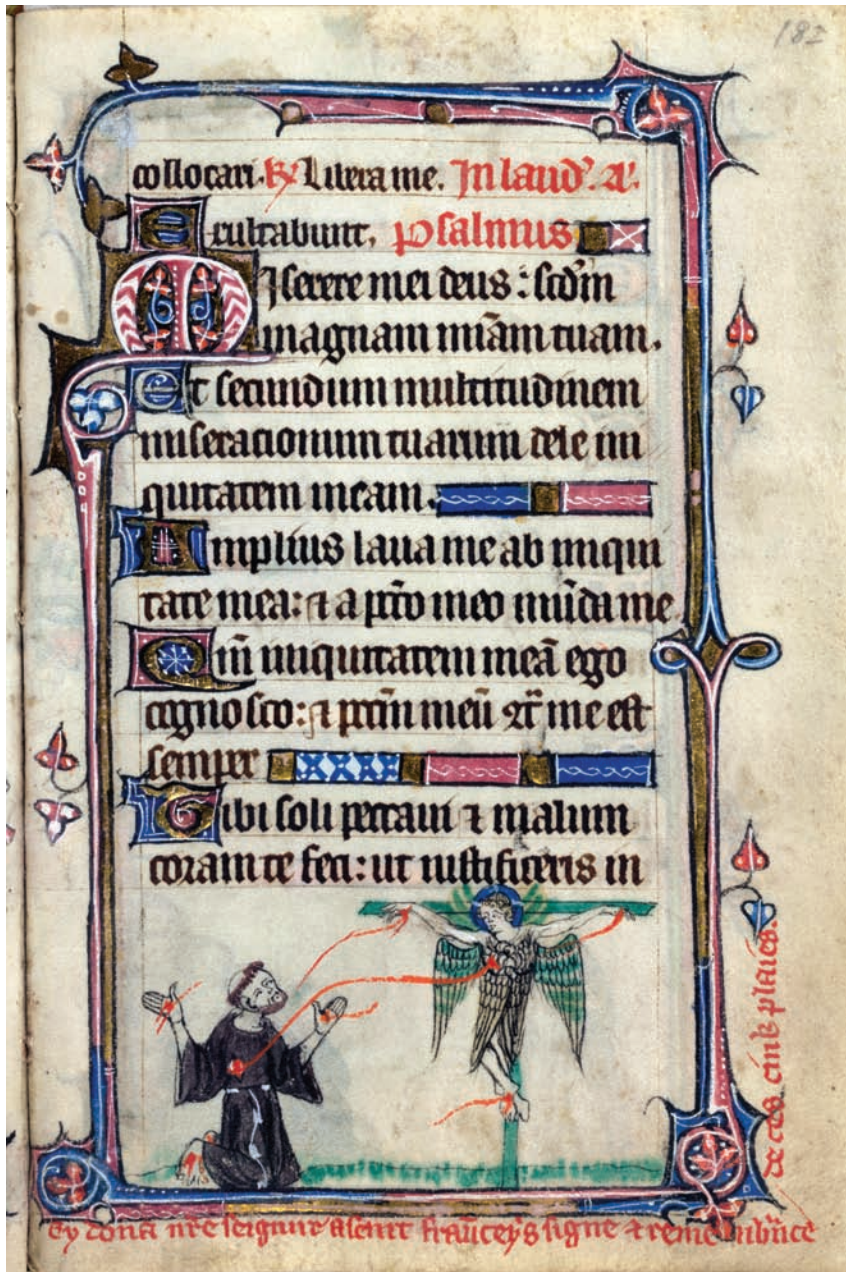 182
collocari. ℟ Libera me. In laud'. a'.
Exultabunt, Psalmus
Miserere mei deus : scd̄m
magnam mīam tuam.
Et secundum multitudinem
miseracionum tuarum dele ini
quitatem meam.
Amplius laua me ab iniqui
tate mea: ⁊ a pcc̄o meo mūda me
Qm̄ iniquitatem meā ego
cognosco: ⁊ pcc̄m meū ꝯt̄ me est
semper
Tibi soli peccaui ⁊ malum
coram te feci: ut iustificeris in
Ey dona nr̄e seignur a seint frāuceys signe ⁊ remembrāce
de ces cink plaies.